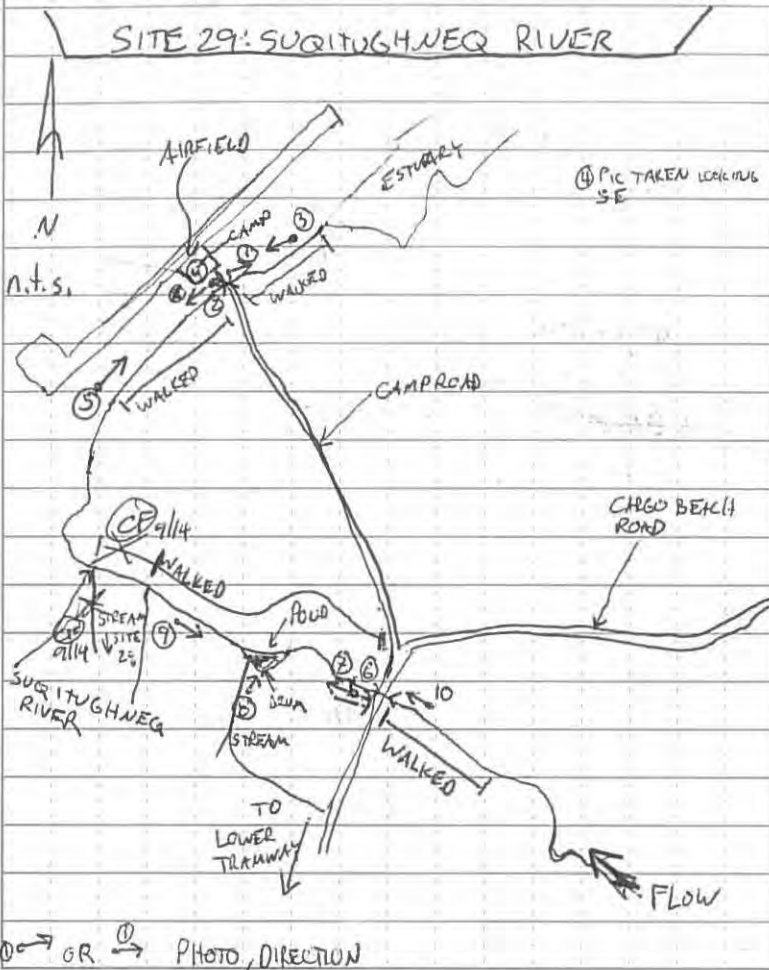 SITE 29: SUQITUGHNEQ RIVER
AIRFIELD
ESTUARY
④ PIC TAKEN LOOKING
SE
N
n.t.s.
CAMP
③
①
④
②
WALKED
⑤
WALKED
CAMP ROAD
CF 9/14
CARGO BEACH
ROAD
WALKED
POND
STREAM
SITE
9/14
⑨
⑦ ⑥
10
SUQITUGHNEQ
RIVER
⑧
STREAM
WALKED
TO
LOWER
TRAMWAY
FLOW
① → OR ① → PHOTO, DIRECTION